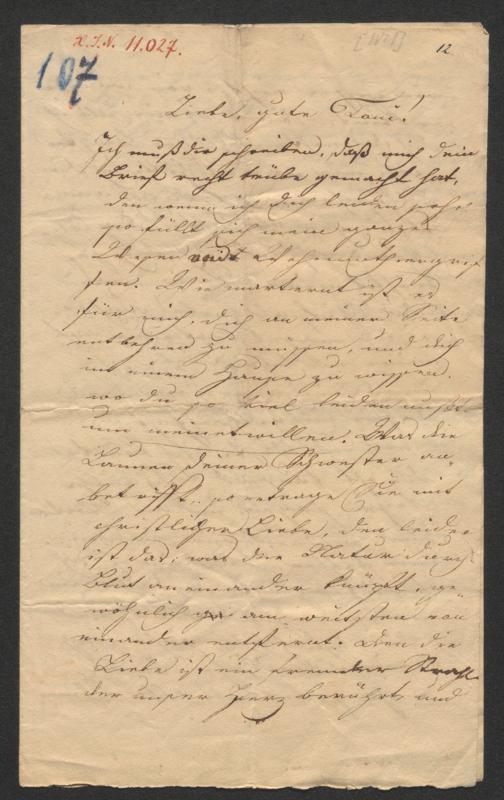 H.I.N. 11.027.
12
107
Liebe, gute Toni!
Ich muß dir schreiben, daß mich dein
Brief recht trübe gemacht hat,
den wenn ich dich leiden sehe
so füllt sich mein ganzes
Wesen mit Wehmuth
Wie marternt ist es
für mich, dich an meiner Seite
entbehren zu müssen, und dich
in einem Hause zu wissen,
wo du so viel leiden mußt
um meinetwillen. Was die
Launen deiner Schwester an-
betrifft, so ertrage Sie mit
christlicher Liebe, den leider
ist das, was die Natur durch
Blut aneinander knüpft, ge-
wöhnlich am weitsten von
einander entfernt. Den die
Liebe ist ein fremder Strahl
der unser Herz berührt, und